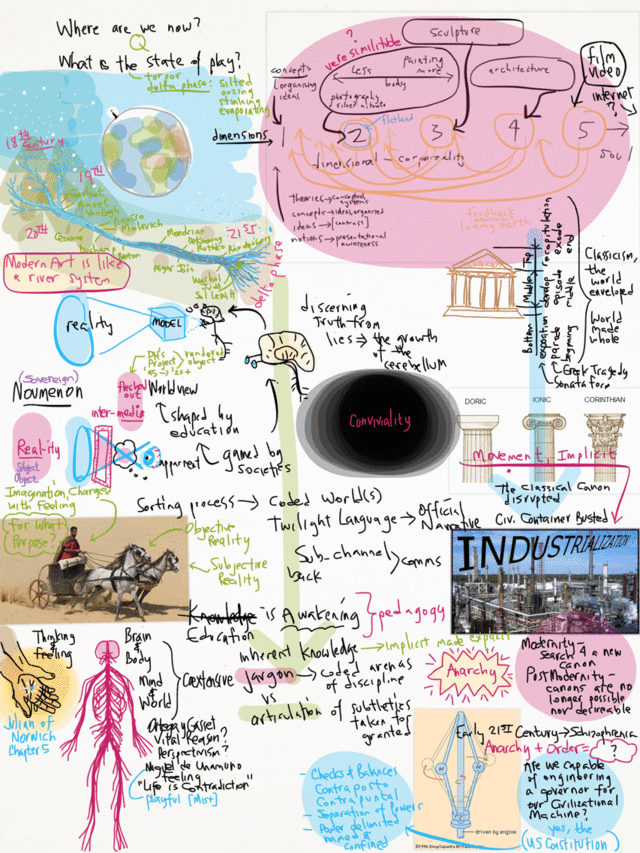 Where are we now?
Q
What is the state of play?
torpor
delta phase: silted
oozing
stinking
evaporating
18TH
Century
19TH
20TH
21ST
Cezanne
Picasso
Malevich
Duchamp
Breton
Mondrian
DeKooning
Rothko
Warhol
Judd
Sol Lewitt
delta phase
Modern Art is like
a river system
?
verisimilitude
sculpture
concepts
organizing
ideas
Less
Painting
more
body
photography
architecture
film
video
internet
?
flatbed
dimensions
1 2 3 4 5
dimensional - corporeality
theories → conceptual
systems
concepts → ideas organized
ideas → [contrast]
notions → presentational
awareness
feedback
Bottom | Middle | Top
exposition develop recapitulation
parade episode exode
beginning middle end
Greek Tragedy
Sonata form
Classicism,
the
world
enveloped
World
made
whole
reality
MODEL
discerning
Truth from
lies → the growth
of the
cerebellum
(Sovereign)
Noumenon
fleshed
out
Worldview
inter-media
shaped by
education
gamed by
societies
apparent
Reality
Subject
Object
Conviviality
DORIC
IONIC
CORINTHIAN
Movement, Implicit
The Classical Canon
disrupted
Civ. Container Busted
INDUSTRIALIZATION
Imagination, Charged
with Feeling
for What
Purpose?
Objective
Reality
Subjective
Reality
Sorting process → Coded World(s)
Twilight Language → Official
Narrative
Sub-channel
back
comms
Knowledge is Awakening
Education
pedagogy
inherent knowledge → implicit made explicit
jargon → coded arenas
of discipline
vs
articulation of subtleties
taken for
granted
Thinking
&
feeling
Brain
&
Body
Mind
&
World
Coextensive
Julian of
Norwich
Chapter 5
Ortega y Gasset
Vital Reason?
Perspectivism?
Miguel de Unamuno
feeling
"Life is Contradiction"
playful [Mist]
Anarchy
Modernity -
Search 4 a new
canon
PostModernity -
canons are no
longer possible
nor desireable
Early 21ST Century → Schizophrenia
Anarchy + Order = ?
Are we capable
of engineering
a governor for
our Civilizational
Machine?
yes, the
(US Constitution)
- Checks & Balances
Contraposto
Contrapuntal
- Separation of Powers
- Power delimited
named &
confined
driven by engine